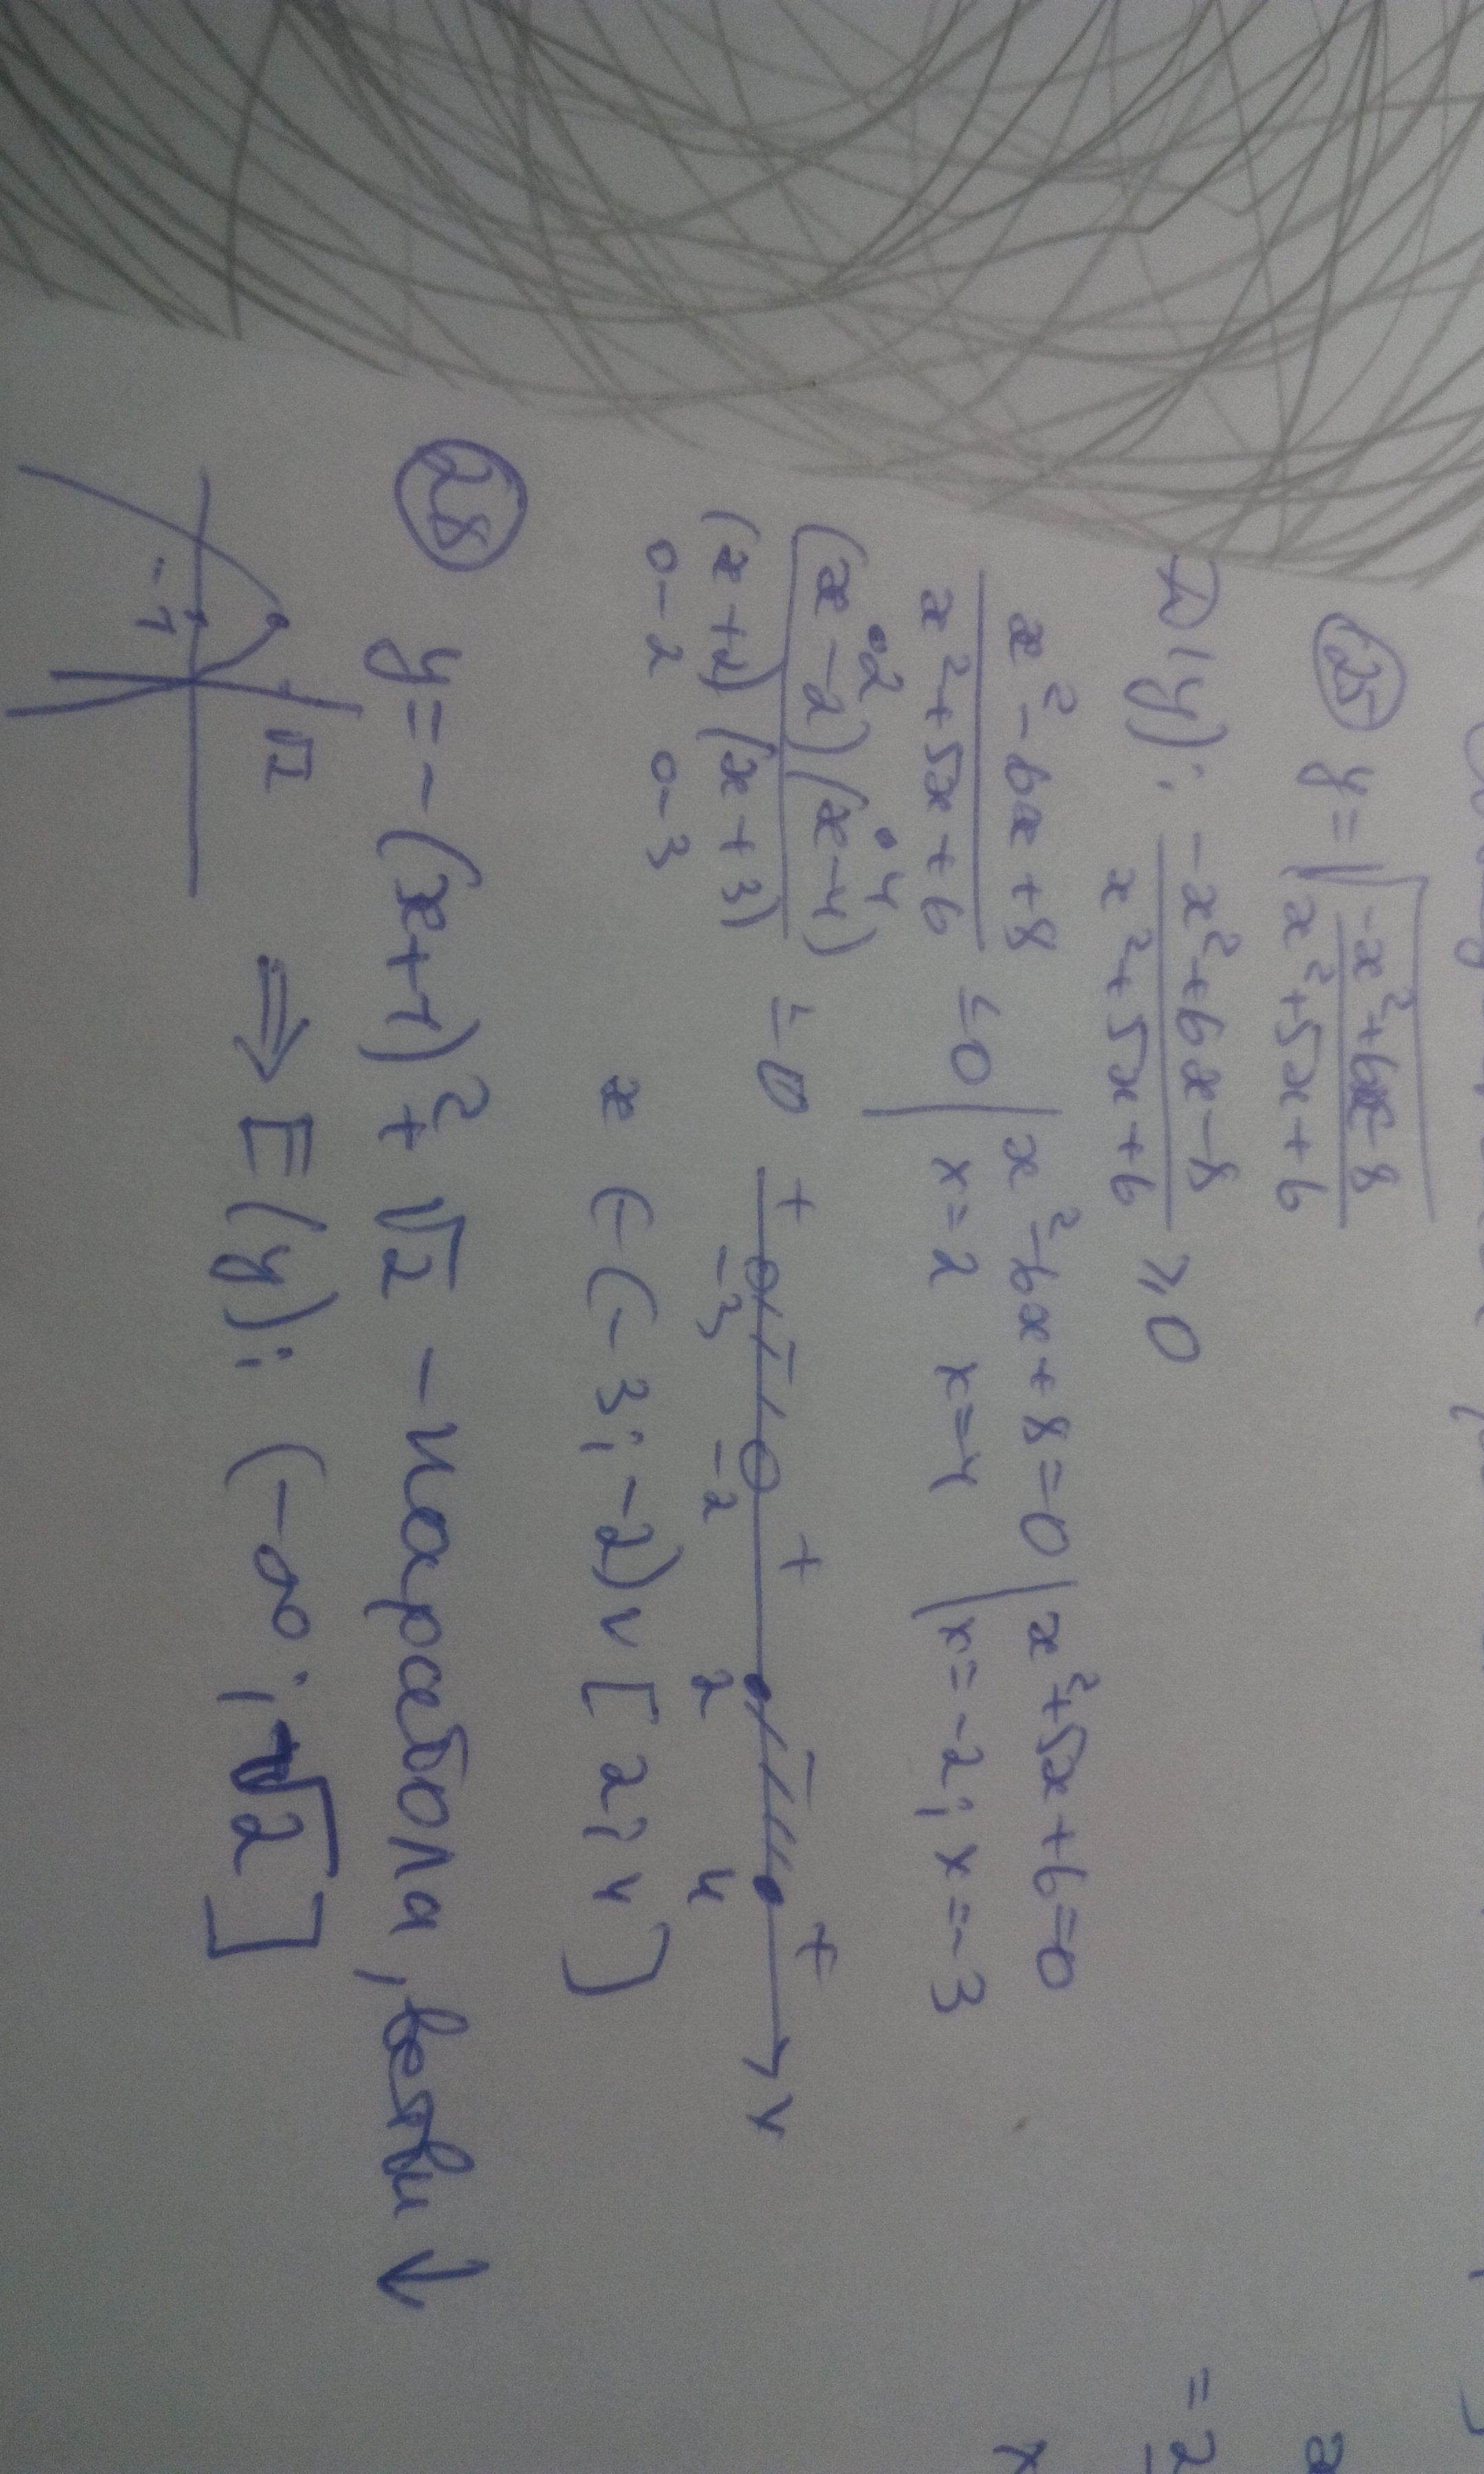 25 y = √((-x²+6x-8)/(x²+5x+6))
D(y): (-x²+6x-8)/(x²+5x+6) ≥ 0
(x²-6x+8)/(x²+5x+6) ≤ 0 | x²-6x+8=0 | x²+5x+6=0
x=2 x=4 | x=-2; x=-3
•2 •4
((x-2)(x-4))/((x+2)(x+3)) ≤ 0
o-2 o-3
+ - + - +
-3 -2 2 4 x
x ∈ (-3; -2) ∪ [2; 4)
28 y = -(x+1)² + √2 - парабола, ветви ↓
⇒ E(y): (-∞; √2]
√2
-1
= 2
x